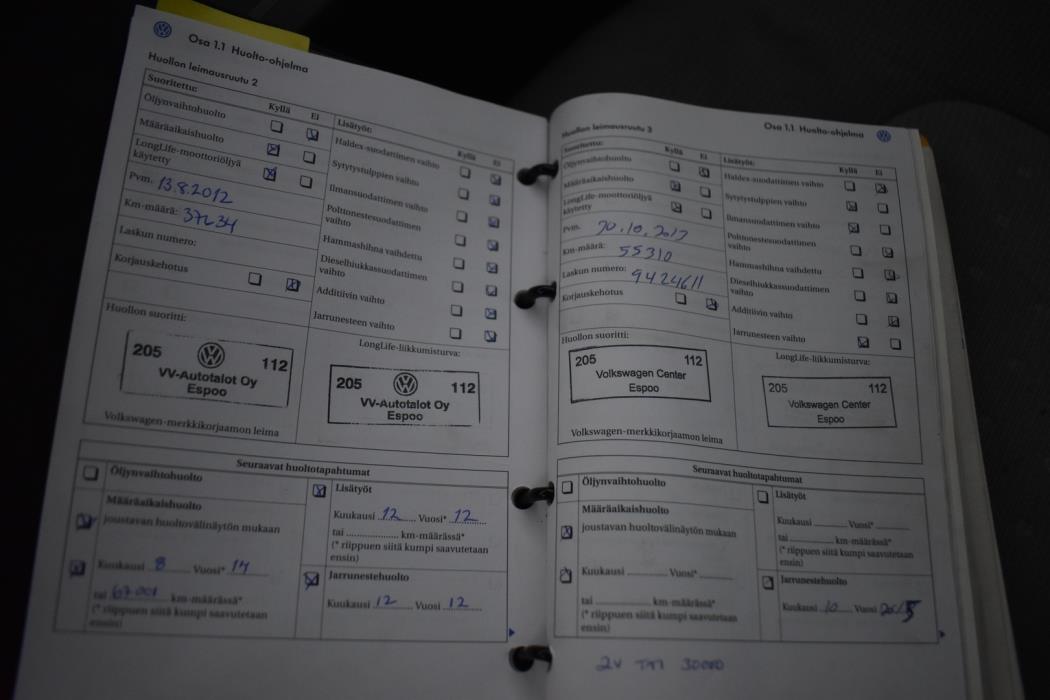 Osa 1.1 Huolto-ohjelma
Huollon leimausruutu 2
Suoritettu: Kyllä Ei
Öljynvaihtohuolto
Määräaikaishuolto
LongLife-moottoriöljyä
käytetty
Pvm. 13.8.2012
Km-määrä: 37234
Laskun numero:
Korjauskehotus
Huollon suoritti:
205 112
VV-Autotalot Oy
Espoo
Volkswagen-merkkikorjaamon leima
Lisätyöt: Kyllä Ei
Haldex-suodattimen vaihto
Sytytystulppien vaihto
Ilmansuodattimen vaihto
Polttonestesuodattimen
vaihto
Hammashihna vaihdettu
Dieselhiukkassuodattimen
vaihto
Additiivin vaihto
Jarrunesteen vaihto
LongLife-liikkumisturva:
205 112
VV-Autotalot Oy
Espoo
Seuraavat huoltotapahtumat
Öljynvaihtohuolto
Määräaikaishuolto
joustavan huoltovälinäytön mukaan
Kuukausi 8 Vuosi* 14
tai 67.001 km-määrässä*
(* riippuen siitä kumpi saavutetaan
ensin)
Lisätyöt
Kuukausi 12 Vuosi* 12
tai km-määrässä*
(* riippuen siitä kumpi saavutetaan
ensin)
Jarrunestehuolto
Kuukausi 12 Vuosi 12
Osa 1.1 Huolto-ohjelma
Huollon leimausruutu 3
Suoritettu: Kyllä Ei
Öljynvaihtohuolto
Määräaikaishuolto
LongLife-moottoriöljyä
käytetty
Pvm.
Km-määrä: 55310
Laskun numero: 9424611
Korjauskehotus
Huollon suoritti:
205 112
Volkswagen Center
Espoo
Volkswagen-merkkikorjaamon leima
Lisätyöt: Kyllä Ei
Haldex-suodattimen vaihto
Sytytystulppien vaihto
Ilmansuodattimen vaihto
Polttonestesuodattimen
vaihto
Hammashihna vaihdettu
Dieselhiukkassuodattimen
vaihto
Additiivin vaihto
Jarrunesteen vaihto
LongLife-liikkumisturva:
205 112
Volkswagen Center
Espoo
Seuraavat huoltotapahtumat
Öljynvaihtohuolto
Määräaikaishuolto
joustavan huoltovälinäytön mukaan
Kuukausi Vuosi*
tai km-määrässä*
(* riippuen siitä kumpi saavutetaan
ensin)
Lisätyöt
Kuukausi Vuosi*
tai km-määrässä*
(* riippuen siitä kumpi saavutetaan
ensin)
Jarrunestehuolto
Kuukausi 10 Vuosi 2015
2V TAI 30000